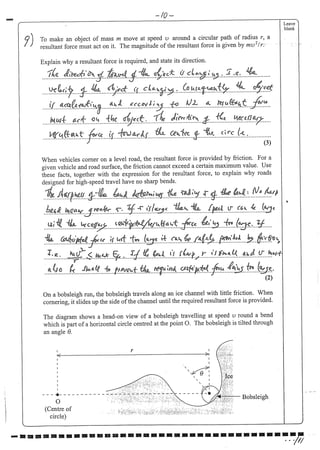 - 10 -
Leave
blank
9) To make an object of mass m move at speed υ around a circular path of radius r, a
resultant force must act on it. The magnitude of the resultant force is given by mυ²/r.
Explain why a resultant force is required, and state its direction.
The direction of travel of the object is changing. I.e. the
velocity of the object is changing. Consequently the object
is accelerating and according to N2 a resultant force
must act on the object. The direction of the necessary
resultant force is towards the centre of the circle.
(3)
When vehicles corner on a level road, the resultant force is provided by friction. For a
given vehicle and road surface, the friction cannot exceed a certain maximum value. Use
these facts, together with the expression for the resultant force, to explain why roads
designed for high-speed travel have no sharp bends.
The sharpness of the bend determines the radius r of the bend: No sharp
bend means greater r. If r is large then the speed υ can be large
with the necessary centripetal/resultant force being too large. If
the centripetal force is not too large it can be safely provided by friction,
I.e. mυ²/r ≤ max F. If the bend is sharp, r is small and υ must
also be small to prevent the required centripetal force being too large.
(2)
On a bobsleigh run, the bobsleigh travels along an ice channel with little friction. When
cornering, it slides up the side of the channel until the required resultant force is provided.
The diagram shows a head-on view of a bobsleigh travelling at speed υ round a bend
which is part of a horizontal circle centred at the point O. The bobsleigh is tilted through
an angle θ.
r
θ
Ice
O
(Centre of
circle)
Bobsleigh
../11